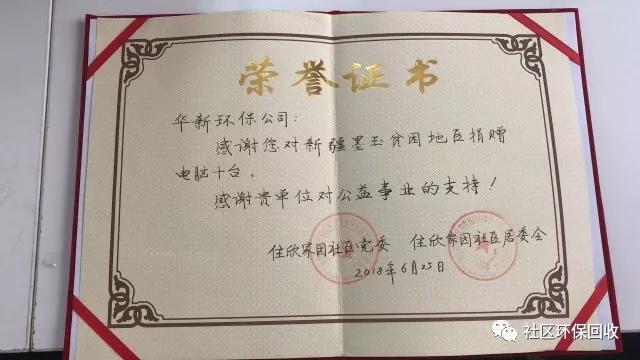 荣誉证书
华新环保公司:
感谢您对新疆墨玉贫困地区捐赠
电脑十台。
感谢贵单位对公益事业的支持!
住欣家园社区党委 住欣家园社区居委会
2018年6月25日
社区环保回收